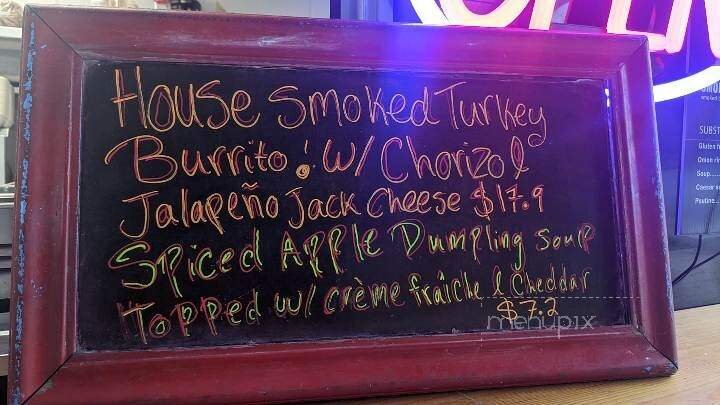 OPEN
House Smoked Turkey
Burrito! w/ Chorizo &
Jalapeño Jack Cheese $17.9
Spiced Apple Dumpling soup
Topped w/ crème fraîche & Cheddar
$7.2
menupix
SUBST
Gluten f
Onion rin
Soup....
Caesar s
Poutine...